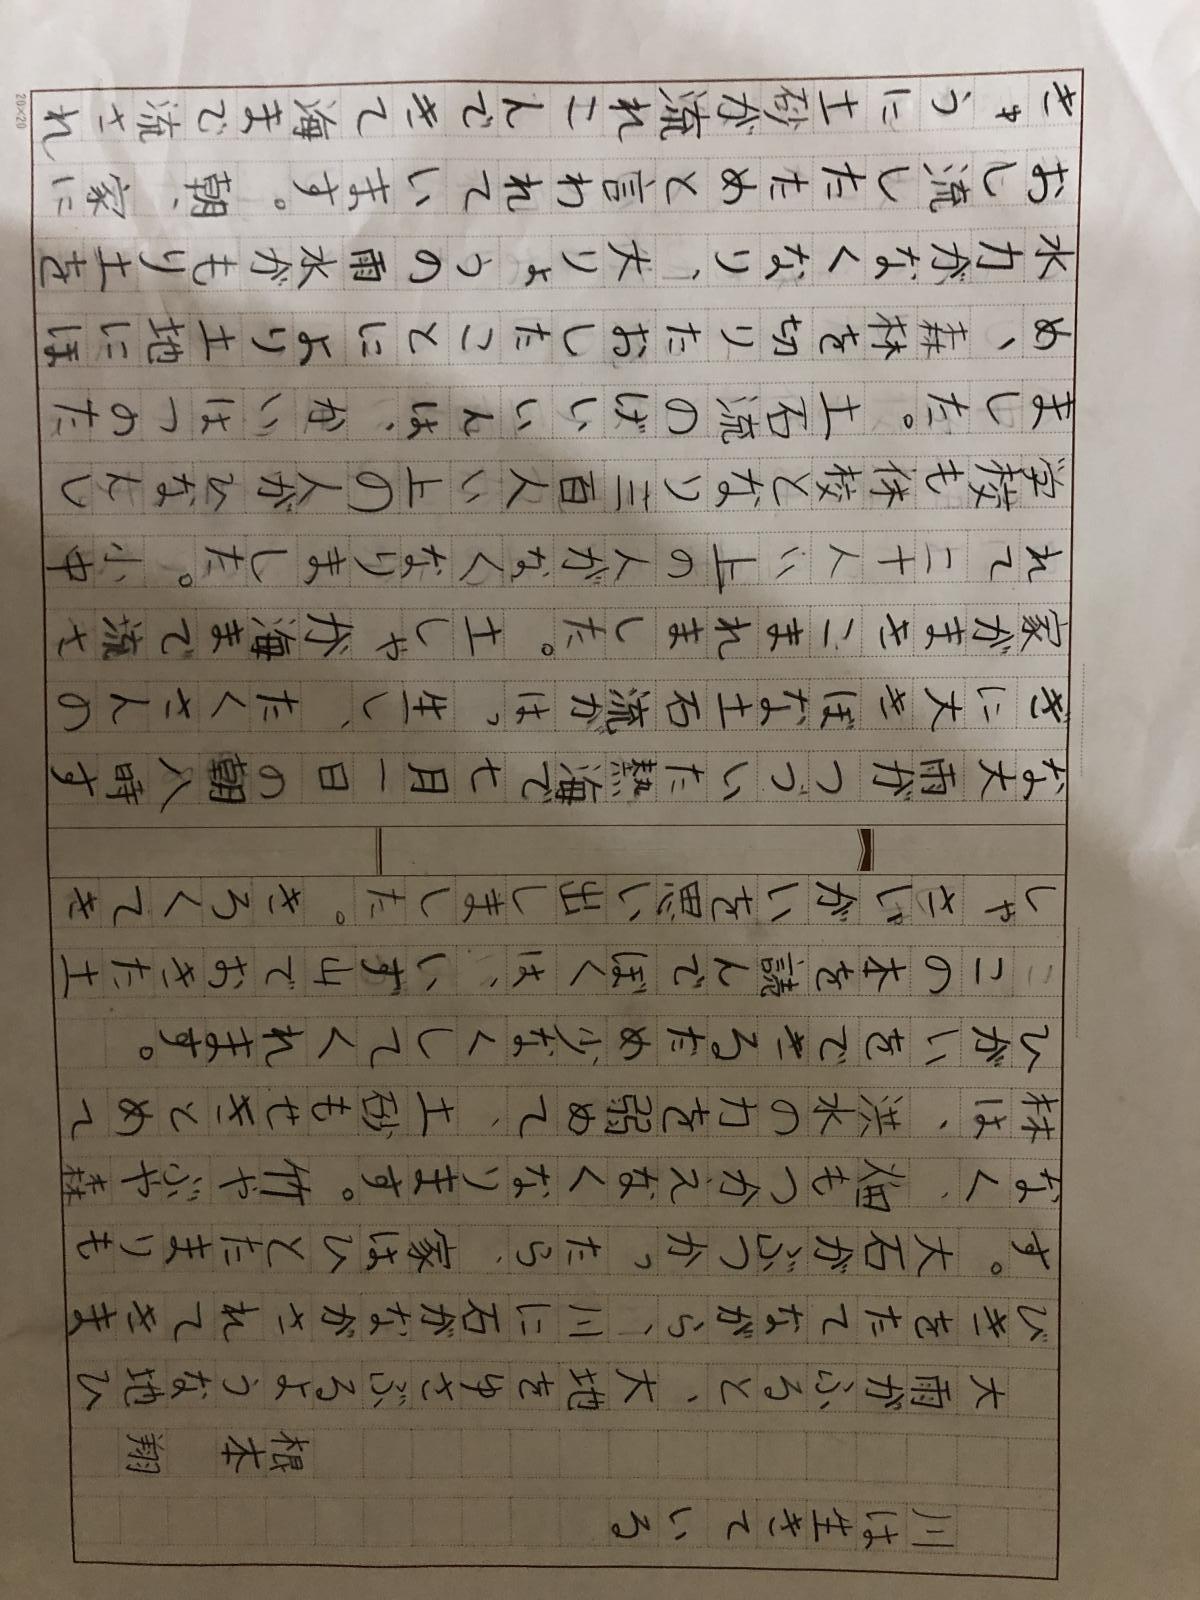 川は生きている
根本 翔
大雨がふると、大地をゆさぶるような地ひ
びきをたてながら、川に石がながされてきま
す。大石がぶつかったら、家はひとたまりも
なく、畑もつかえなくなります。竹やぶや森
林は、洪水の力を弱めて、土砂もせきとめて
ひがいをできるだめ少なくしてくれます。
この本を読んでぼくは、いず山でおきた土
しゃさいがいを思い出しました。きろくてき
な大雨がつづいた熱海で七月一日の朝八時す
ぎに大きぼな土石流がはっ生し、たくさんの
家がまきこまれました。土しゃが海まで流さ
れて二十人い上の人がなくなりました。小中
学校も休校となり三百人い上の人がひなんし
ました。土石流のげいいんは、かいはつのた
め、森林を切りたおしたことにより土地にほ
水力がなくなり、大りょうの雨水がもり土を
おし流したためと言われています。朝、家に
きゅうに土砂が流れこんできて海まで流され
20×20